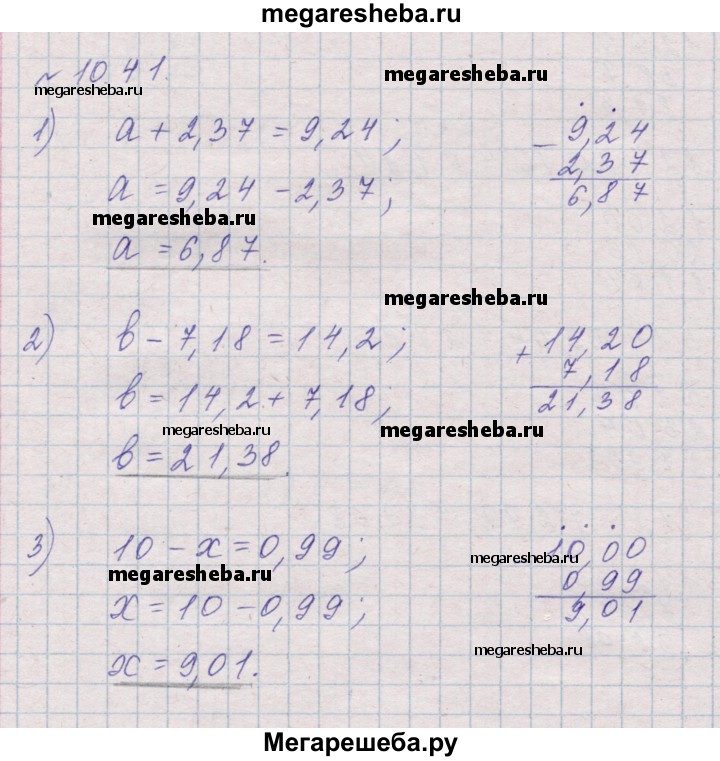 megaresheba.ru
№ 1041.
megaresheba.ru
megaresheba.ru
1) a + 2,37 = 9,24;
a = 9,24 - 2,37;
megaresheba.ru
a = 6,87.
- 9,24
2,37
6,87
megaresheba.ru
2) в - 7,18 = 14,2;
в = 14,2 + 7,18;
megaresheba.ru
megaresheba.ru
в = 21,38.
+ 14,20
7,18
21,38
3) 10 - x = 0,99;
megaresheba.ru
x = 10 - 0,99;
x = 9,01.
10,00
megaresheba.ru
0,99
9,01
megaresheba.ru
Мегарешеба.ру